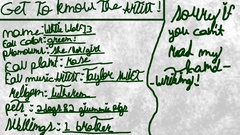 Get To know The Artist!
name: White Wolf13
Fav color: green!
Fav animal: Horse
Fav music Artist: Taylor swift
Religon: Lutheren
pets: 2 dogs & 2 guinnie pigs
Siblings: 1 brother
sorry if
you can't
read my
hand-
writing!